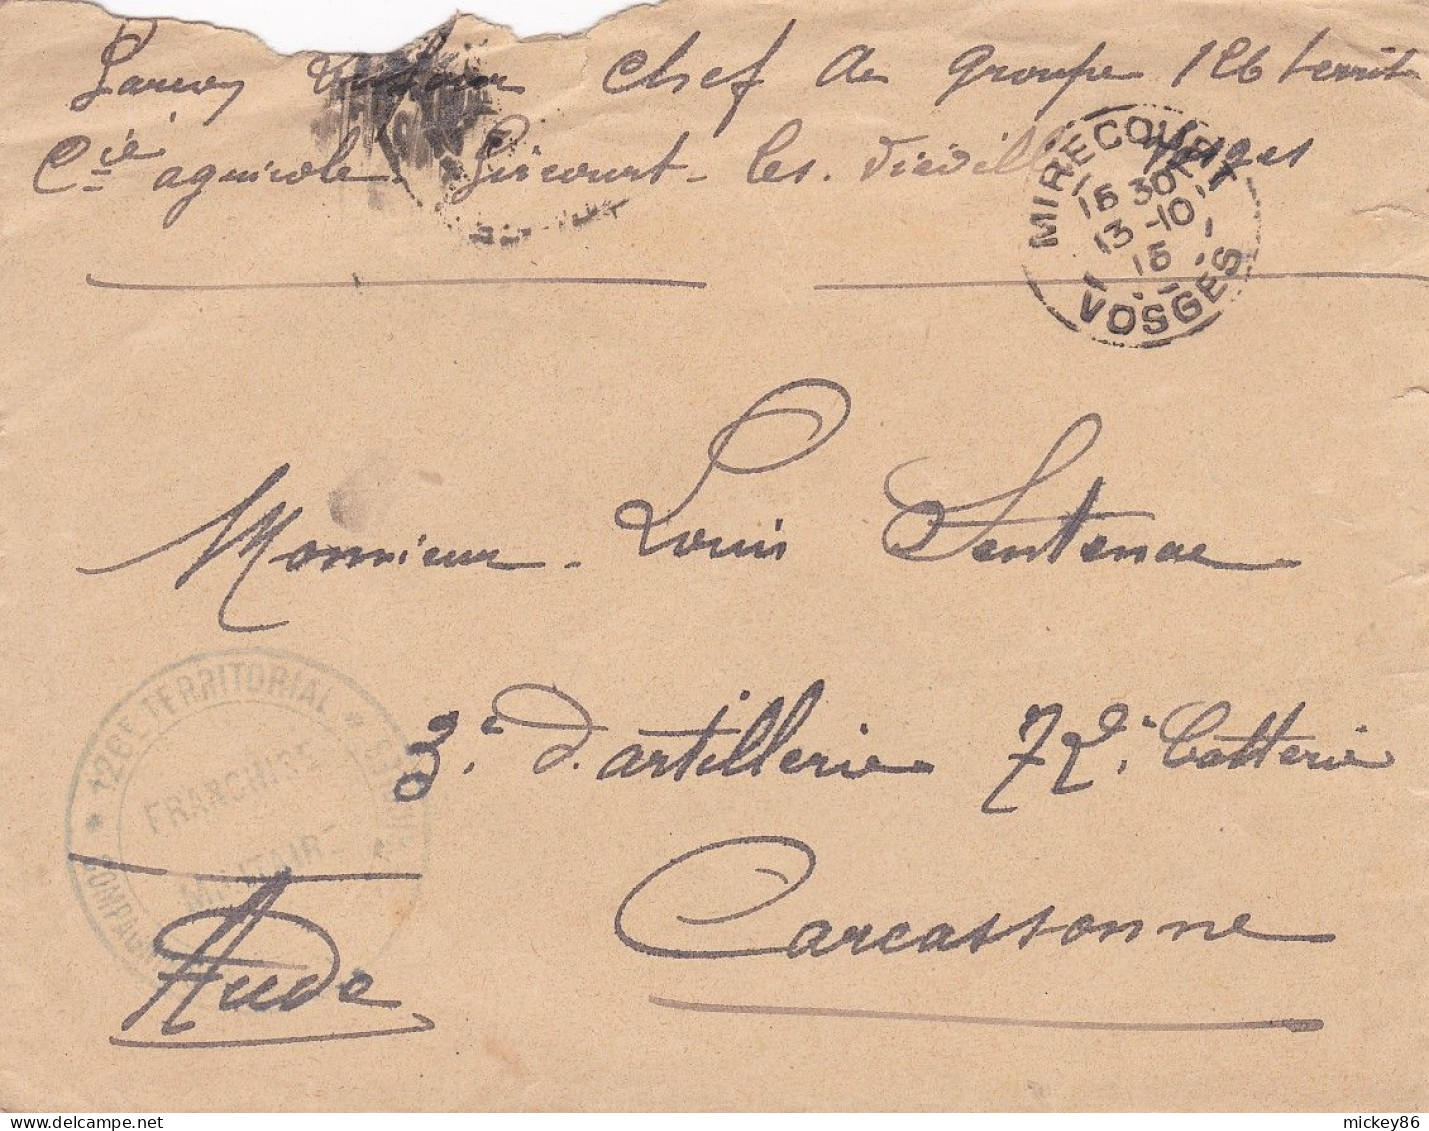 Chef de groupe 126 territ
Cie agricole. Gircourt-les-Viéville Vosges
MIRECOURT
15 30
13 -10
15
VOSGES
Monsieur Louis Sentenac
3e d'artillerie 72e batterie
Carcassonne
Aude
* 126E TERRITORIAL *
FRANCHISE
MILITAIRE
mickey86